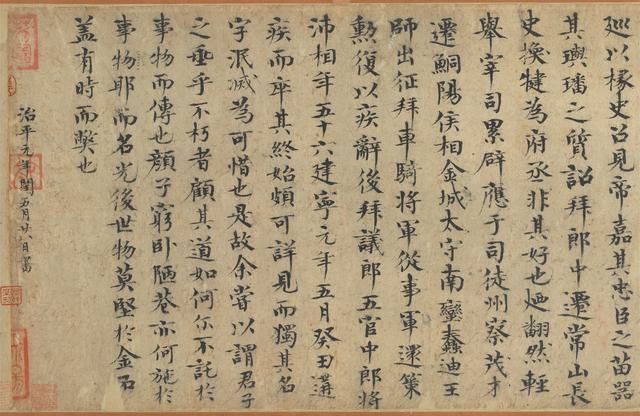 巡以椽史召見帝嘉其忠臣之苗器
其璵璠之質詔拜郎中遷常山長
史換犍為府丞非其好也迺翻然輕
舉宰司累辟應于司徒州察茂才
遷鮦陽侯相金城太守南蠻蠢迪王
師出征拜車騎將軍從事軍還策
勲復以疾辭後拜議郎五官中郎將
沛相年五十六建寧元年五月癸丑遘
疾而卒其終始頗可詳見而獨其名
字泯滅為可惜也是故余嘗以謂君子
之垂乎不朽者顧其道如何尓不託於
事物而傳也顏子窮卧陋巷亦何施於
事物耶而名光後世物莫堅於金石
蓋有時而獘也
治平元年閏五月廿八日書